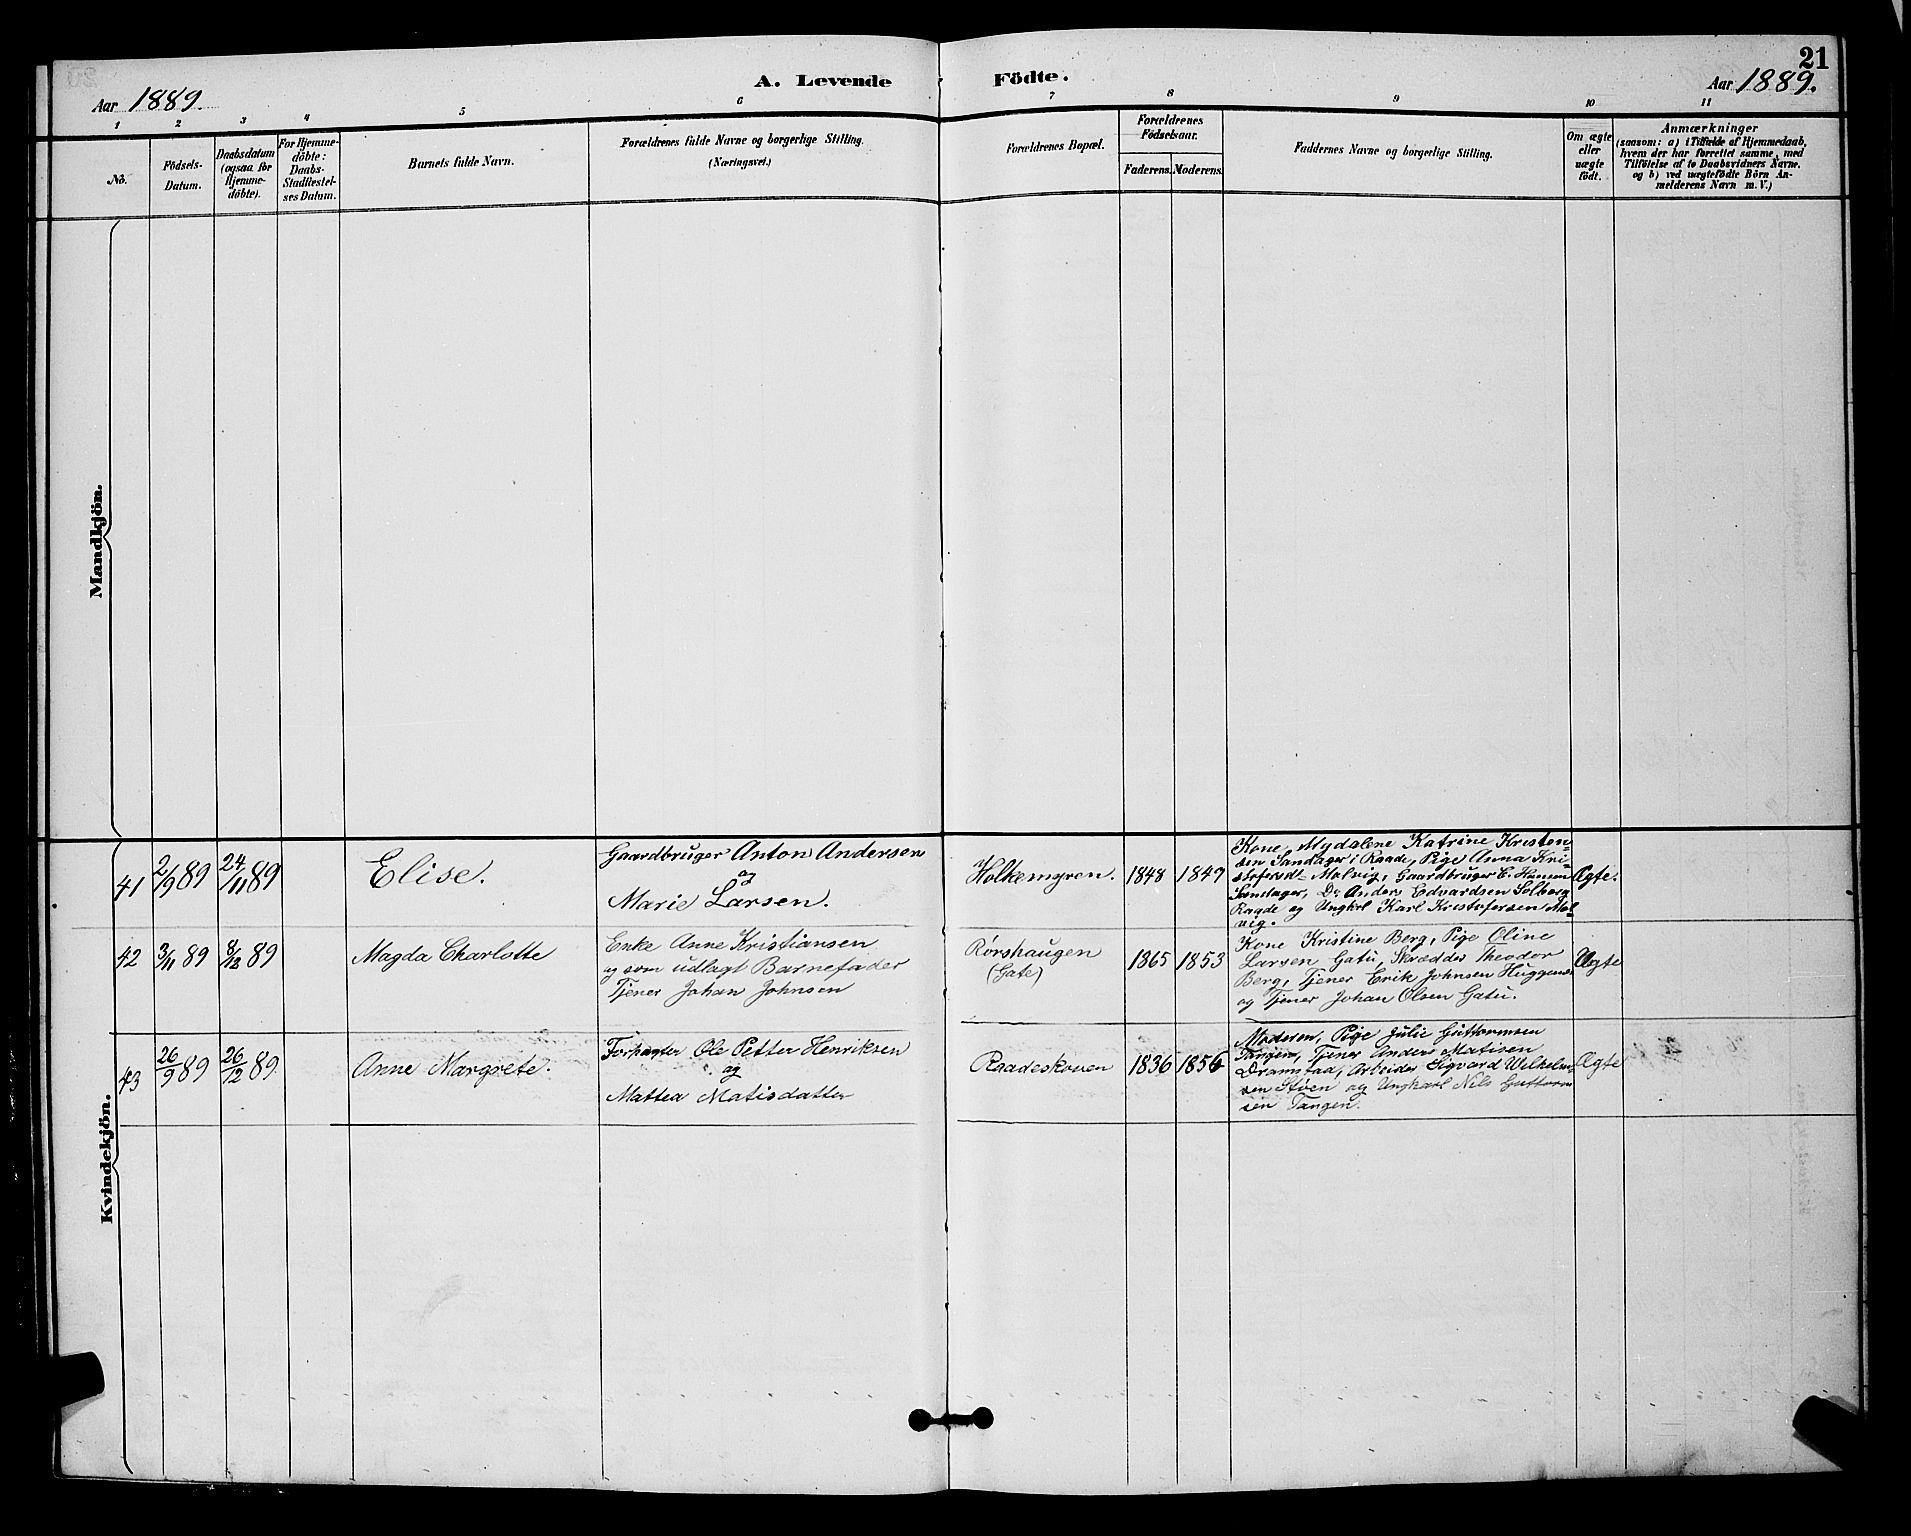 21
A. Levende Födte.
Aar 1889.
Aar 1889.
1 2 3 4 5 6 7 8 9 10 11
No.
Födsels-
Datum.
Daabsdatum
(ogsaa for
Hjemme-
döbte).
For Hjemme-
döbte:
Daabs-
Stadfestel-
ses Datum.
Barnets fulde Navn.
Forældrenes fulde Navne og borgerlige Stilling.
(Næringsvei.)
Forældrenes Bopæl.
Forældrenes
Födselsaar.
Faderens. Moderens.
Faddernes Navne og borgerlige Stilling.
Om ægte
eller
uægte
födt.
Anmærkninger
(saasom: a) i Tilfælde af Hjemmedaab,
hvem der har forrettet samme, med
Tilföielse af to Daabsvidners Navne.
og b) ved uægtefödte Börn An-
melderens Navn m. V.)
Mandkjön.
Kvindekjön.
41 2/9 89 24/11 89
Elise.
Gaardbruger Anton Andersen
og
Marie Larsen.
Holkemyren.
1848 1849
Kone Mydalene Katrine Kristen-
sen Sandager i Raade, Pige Anna Kri-
stofersdt Malvig, Gaardbruger E. Hansen
Sandager, Do Anders Edvardsen Solberg
Raade og Ungkrl Karl Kristofersen Mal-
vig.
Ægte.
42 3/11 89 8/12 89
Magda Charlotte
Enke Anne Kristiansen
og som udlagt Barnefader
Tjener Johan Johnsen
Rørshaugen
(Gate)
1865 1853
Kone Kristine Berg, Pige Oline
Larsen Gatu, Skrædder Theodor
Berg, Tjener Erik Johnsen
og Tjener Johan Olsen Gatu.
Uægte
43 26/9 89 26/12 89
Anne Margrete.
Forpagter Ole Petter Henriksen
og
Mattea Matisdatter
Raadeskoven
1836 1856
Moderen, Pige Julie Guttormsen
Tangen, Tjener Anders Matisen
Dramstad, Arbeider Sigvard Wilhelm-
sen Støen og Ungkarl Nils Guttorm
sen Tangen.
Ægte